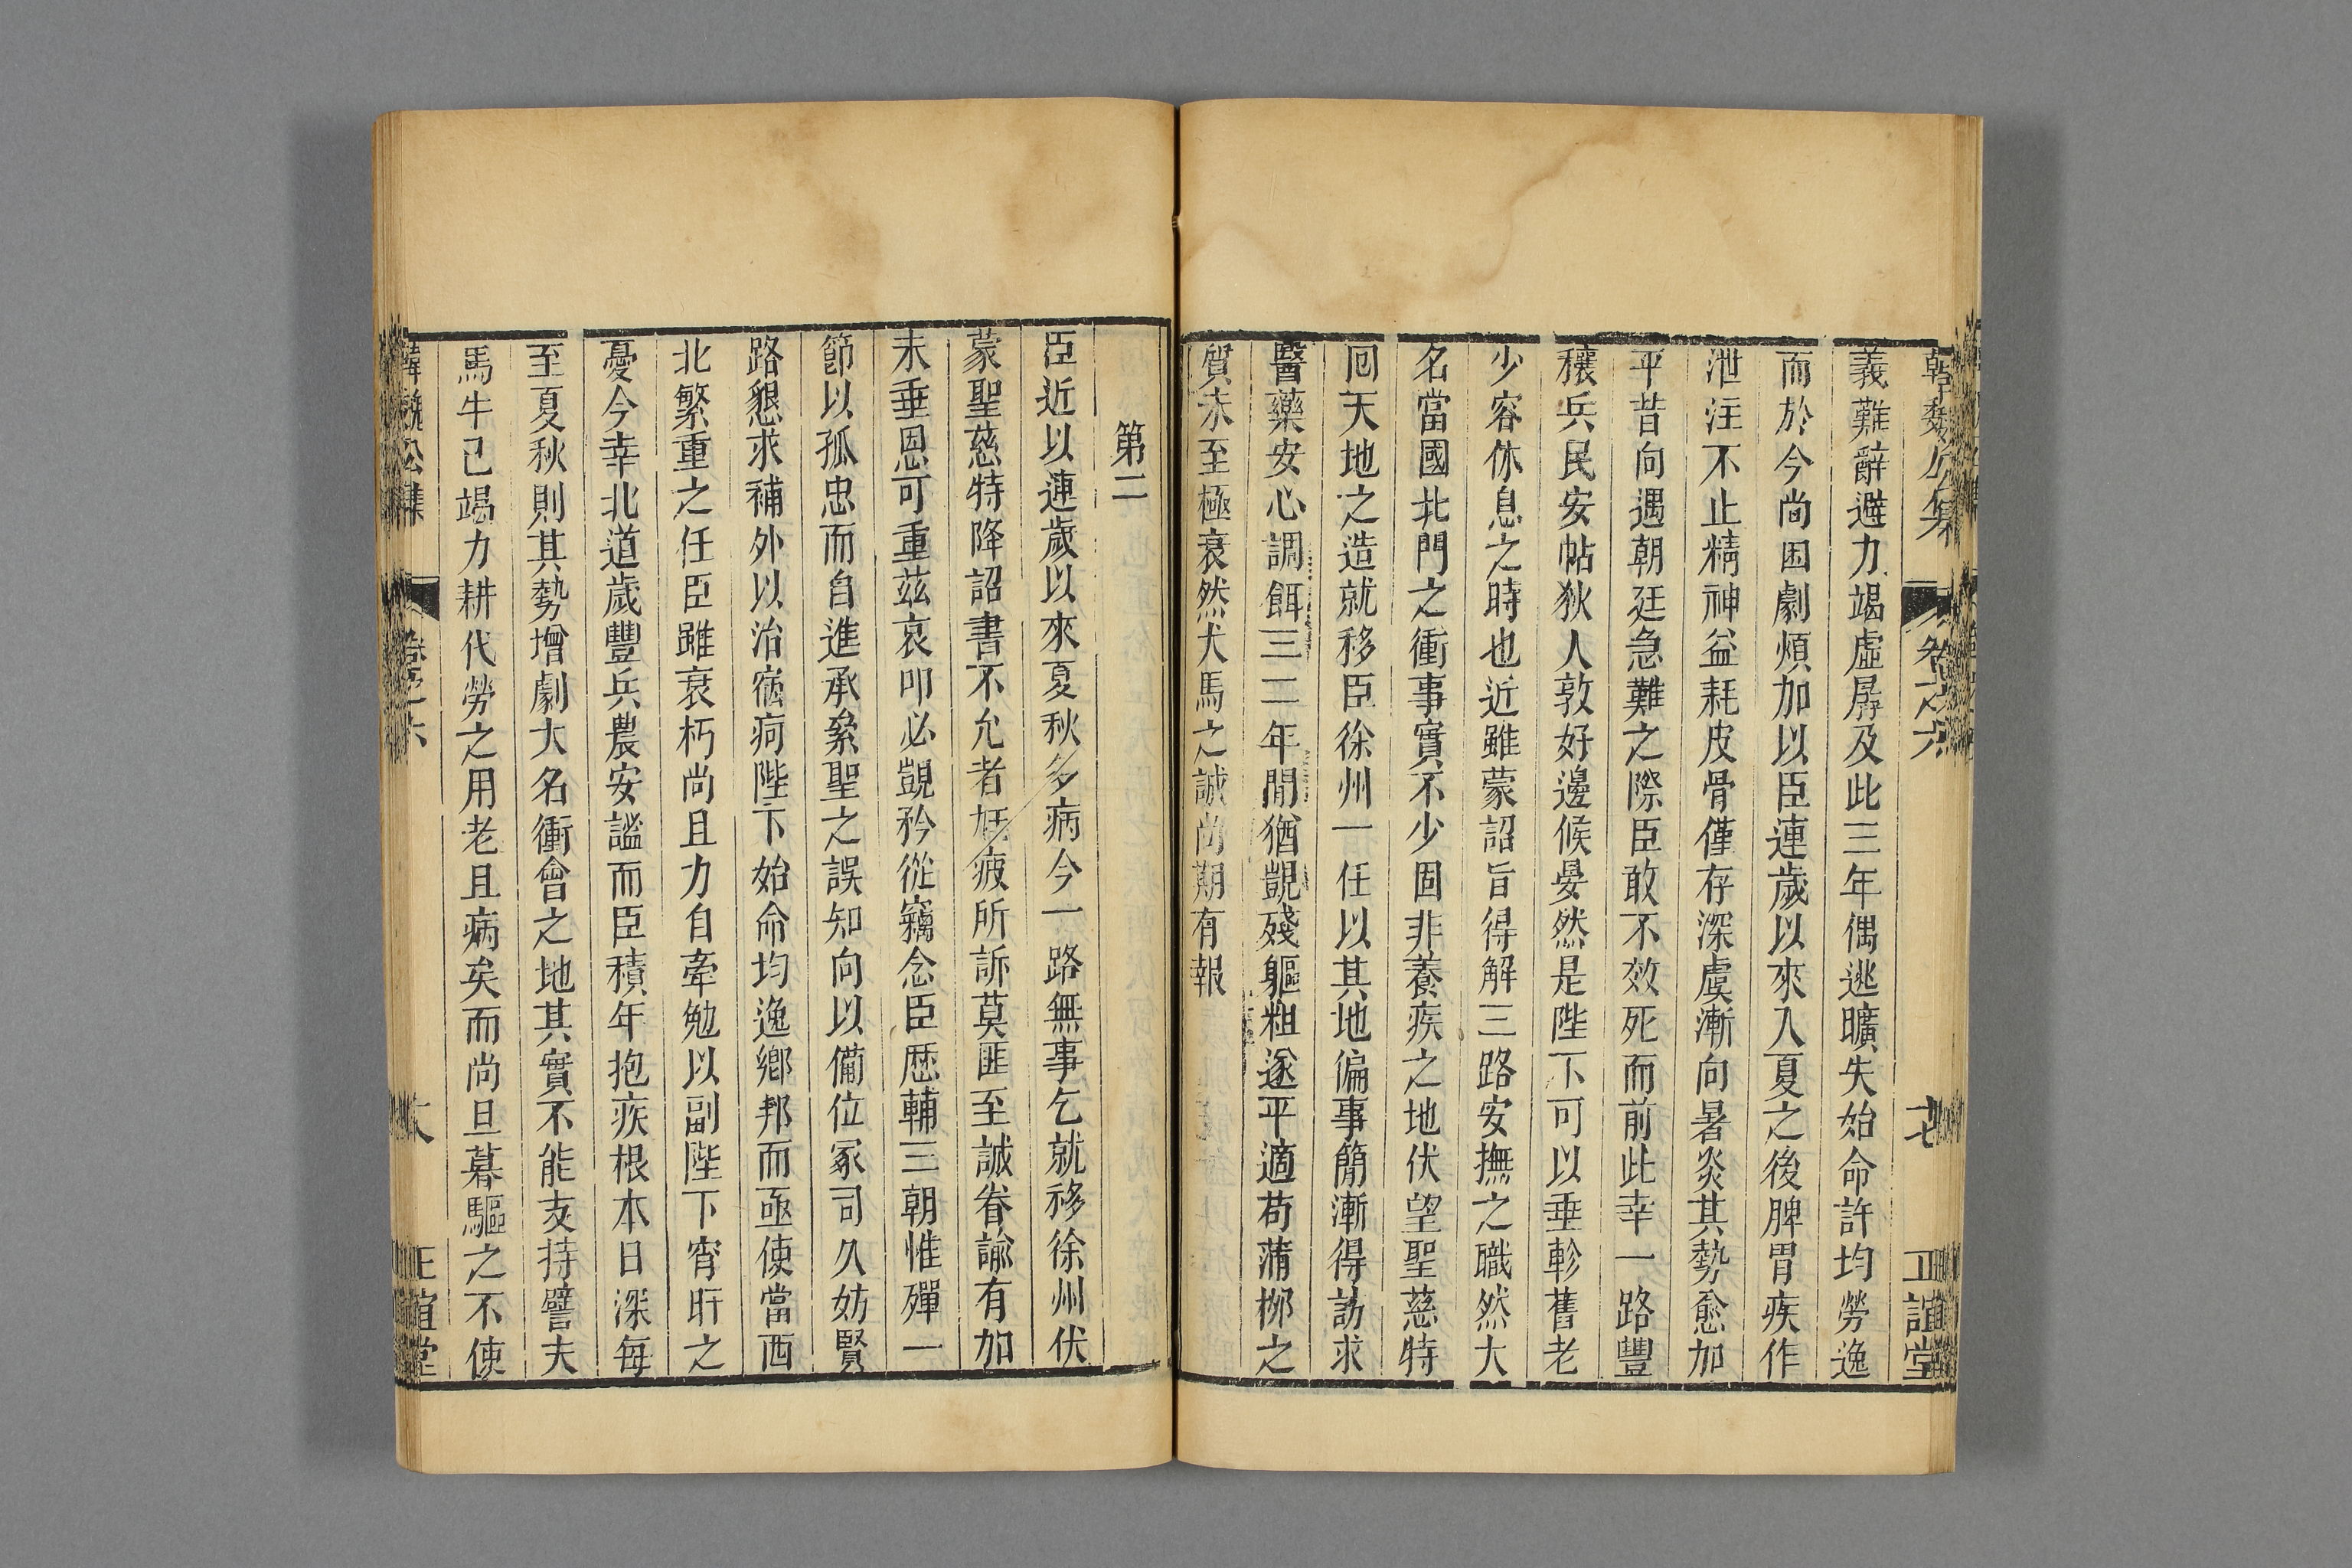 韓魏公集 卷之六 十七 正誼堂
義難辭避力竭虛孱及此三年偶逃曠失始命許均勞逸
而於今尚困劇煩加以臣連歲以來入夏之後脾胃疾作
泄注不止精神益耗皮骨僅存深虞漸向暑炎其勢愈加
平昔向遇朝廷急難之際臣敢不效死而前此幸一路豐
穰兵民安帖狄人敦好邊候晏然是陛下可以垂軫舊老
少容休息之時也近雖蒙詔旨得解三路安撫之職然大
名當國北門之衝事實不少固非養疾之地伏望聖慈特
囘天地之造就移臣徐州一任以其地偏事簡漸得訪求
醫藥安心調餌三二年閒猶覬殘軀粗遂平適苟蒲桺之
質未至極衰然犬馬之誠尚期有報
第二
臣近以連歲以來夏秋多病今一路無事乞就移徐州伏
蒙聖慈特降詔書不允者尫疲所訴莫匪至誠眷諭有加
未垂恩可重茲哀叩必覬矜從竊念臣歷輔三朝惟殫一
節以孤忠而自進承絫聖之誤知向以備位冢司久妨賢
路懇求補外以治宿疴陛下始命均逸鄉邦而亟使當西
北繁重之任臣雖衰朽尚且力自牽勉以副陛下宵旰之
憂今幸北道歲豐兵農安謐而臣積年抱疾根本日深每
至夏秋則其勢增劇大名衝會之地其實不能支持譬夫
馬牛已竭力耕代勞之用老且病矣而尚旦暮驅之不使
韓魏公集 卷之六 大 正誼堂